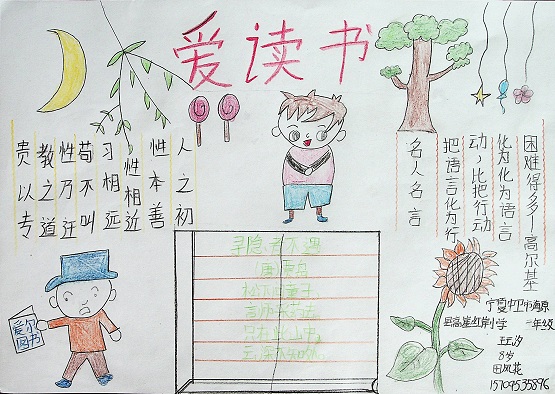 爱读书
人之初
性本善
性相近
习相远
苟不叫
性乃迁
教之道
贵以专
名人名言
把语言化为行
动,比把行动
化为化为语言
困难得多—高尔基
寻隐者不遇
(唐)贾岛
松下问童子
言师采药去
只在此山中,
云深不知处
宁夏中卫市海原
县高崖红岸小学 二年级
8岁
田凤花
15709535896